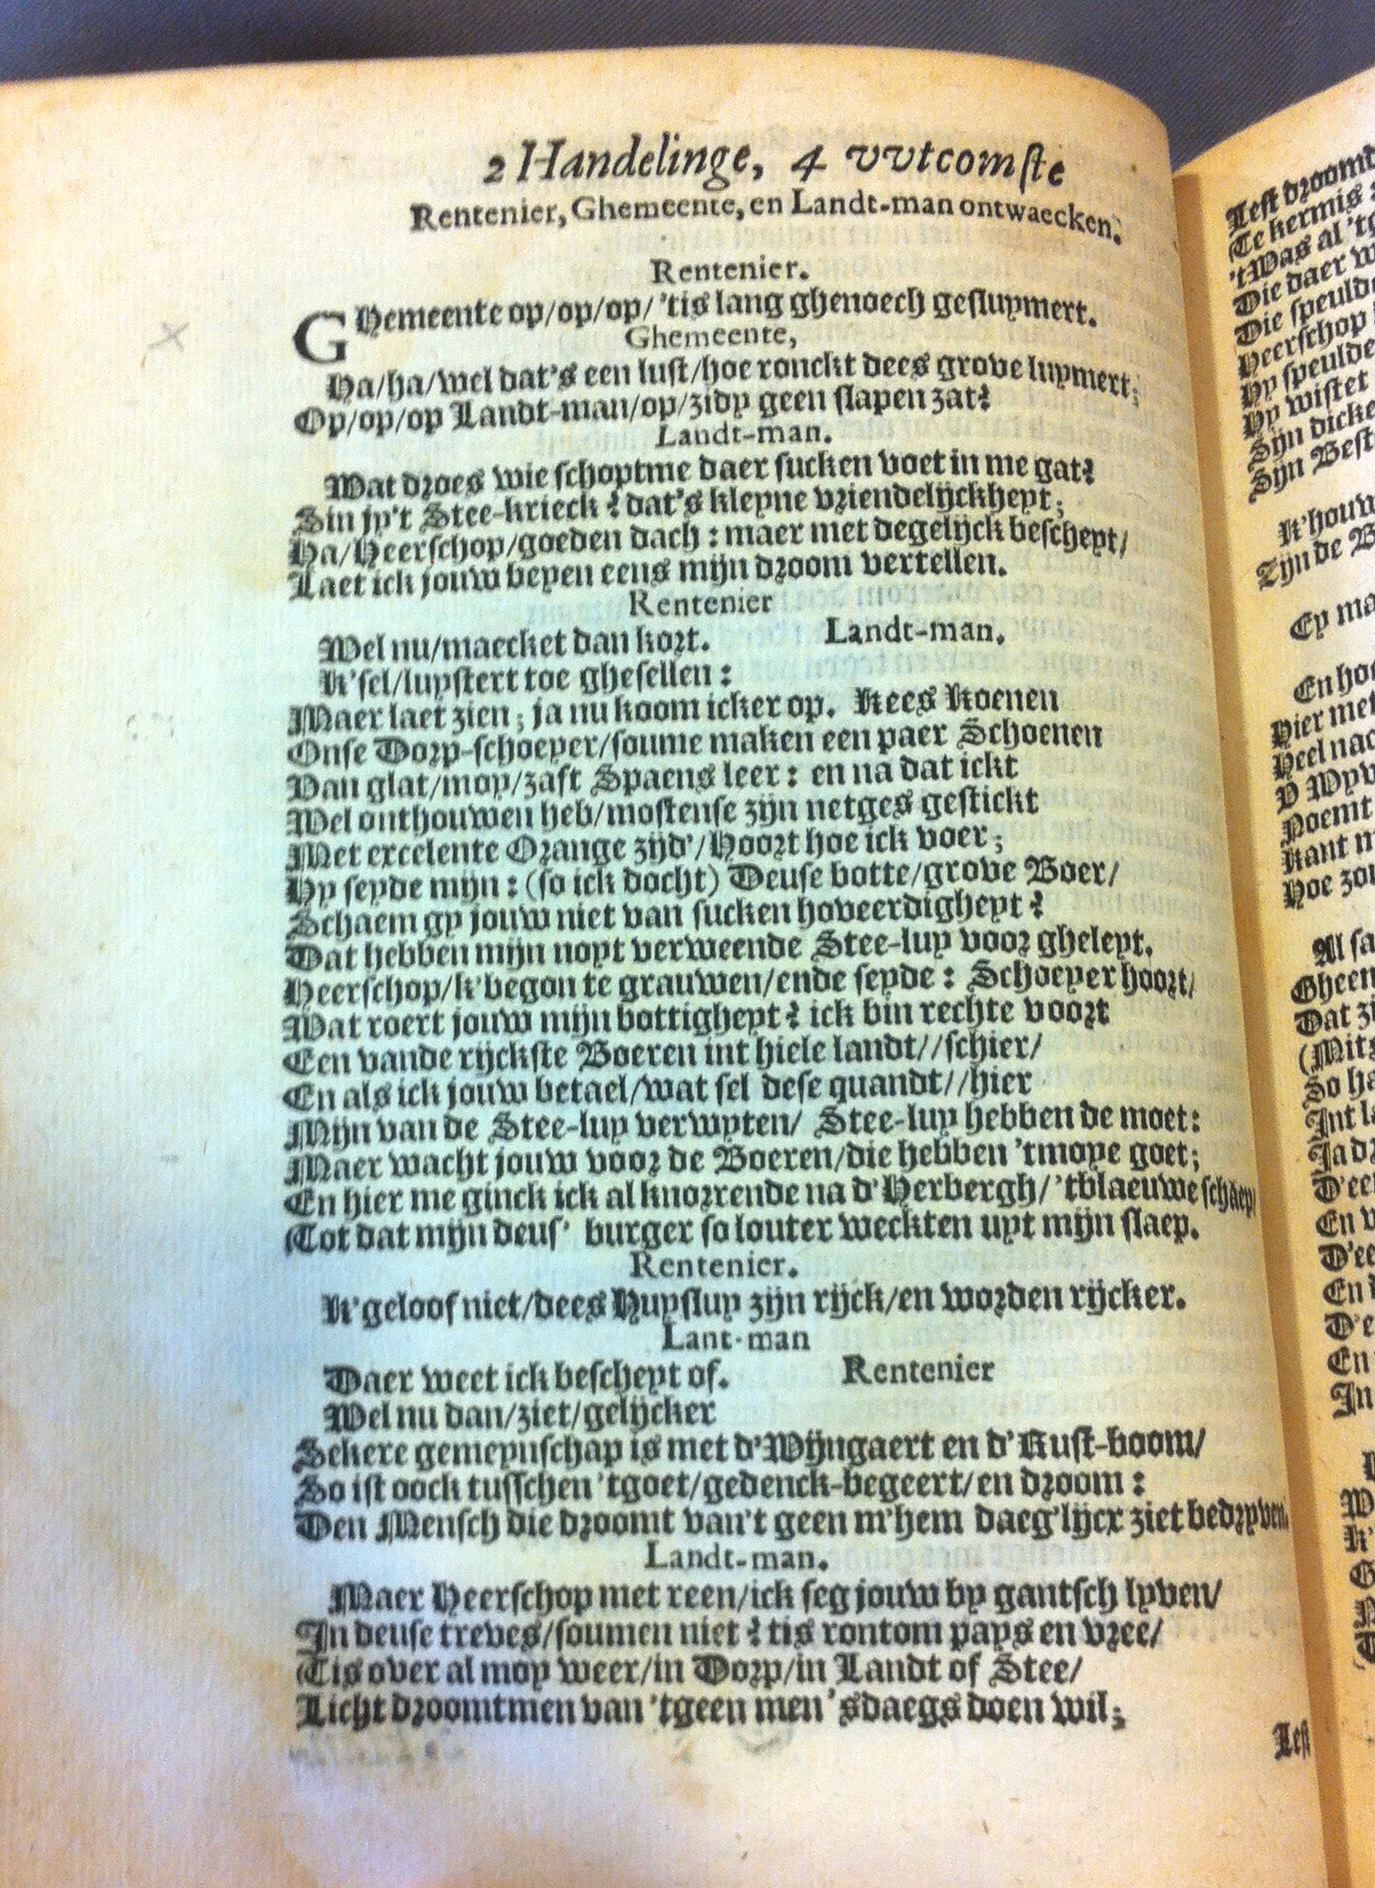 2 Handelinge, 4 vvtcomste
Rentenier, Ghemeente, en Landt-man ontwaecken.
Rentenier.
GHemeente op/op/op/'tis lang ghenoech gesluymert.
Ghemeente,
Ha/ha/wel dat's een lust/hoe ronckt dees grove luymert;
Op/op/op Landt-man/op/zidy geen slapen zat?
Landt-man.
Wat droes wie schoptme daer sucken voet in me gat?
Sin jy't Stee-krieck? dat's kleyne vriendelijckheyt;
Ha/Heerschop/goeden dach: maer met degelijck bescheyt/
Laet ick jouw beyen eens mijn droom vertellen.
Rentenier
Wel nu/maecket dan kort. Landt-man.
K'sel/luystert toe ghesellen:
Maer laet zien; ja nu koom icker op. Kees Koenen
Onse Dorp-schoeyer/soume maken een paer Schoenen
Van glat/moy/zaft Spaens leer: en na dat ickt
Wel onthouwen heb/mostense zijn netges gestickt
Met excelente Orange zijd'/Hoort hoe ick voer;
Hy seyde mijn: (so ick docht) Deuse botte/grove Boer/
Schaem gy jouw niet van sucken hoveerdigheyt?
Dat hebben mijn noyt verweende Stee-luy voor gheleyt.
Heerschop/k'begon te grauwen/ende seyde: Schoeyer hoort/
Wat roert jouw mijn bottigheyt? ick bin rechte voort
Een vande rijckste Boeren int hiele landt//schier/
En als ick jouw betael/wat sel dese quandt//hier
Mijn van de Stee-luy verwyten/ Stee-luy hebben de moet:
Maer wacht jouw voor de Boeren/die hebben 'tmoye goet;
En hier me ginck ick al knorrende na d'Herbergh/'tblaeuwe schaep/
Tot dat mijn deus' burger so louter weckten uyt mijn slaep.
Rentenier.
K'geloof niet/dees Huysluy zijn rijck/en worden rijcker.
Lant-man
Daer weet ick bescheyt of. Rentenier
Wel nu dan/ziet/gelijcker
Sekere gemeynschap is met d'Wijngaert en d'Rust-boom/
So ist oock tusschen 'tgoet/gedenck-begeert/en droom:
Den Mensch die droomt van't geen m'hem daeg'lijcx ziet bedryven.
Landt-man.
Maer Heerschop met reen/ick seg jouw by gantsch lyven/
In deuse treves/soumen niet? tis rontom pays en vree/
Tis over al moy weer/in Dorp/in Landt of Stee/
Licht droomtmen van 'tgeen men 'sdaegs doen wil;
Lest
Lest droomd
Te kermis
't Was al 'tg
Die daer w
Die speulde
Heerschop
Hy speulde
Hy wistet
Sijn dicke
Sijn Best
K'houw
Zijn de B
Ey ma
En hor
Hier met
Heel nac
Noemt
Kant m
Hoe zou
Al sa
Gheen
Dat zi
(Mits
So ha
Int la
Ja dr
D'eel
En v
D'ee
En d
D'e
En
In